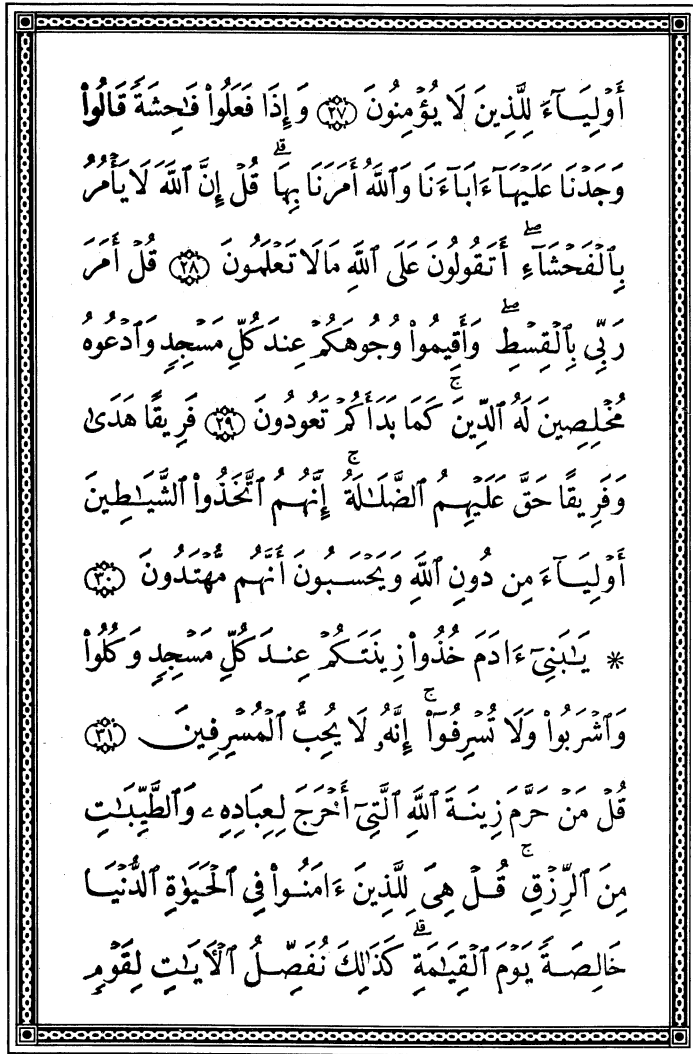 أَوْلِيَآءَ لِلَّذِينَ لَا يُؤْمِنُونَ ﴿٢٧﴾ وَإِذَا فَعَلُوا۟ فَـٰحِشَةً قَالُوا۟
وَجَدْنَا عَلَيْهَآ ءَابَآءَنَا وَٱللَّهُ أَمَرَنَا بِهَا ۗ قُلْ إِنَّ ٱللَّهَ لَا يَأْمُرُ
بِٱلْفَحْشَآءِ ۖ أَتَقُولُونَ عَلَى ٱللَّهِ مَا لَا تَعْلَمُونَ ﴿٢٨﴾ قُلْ أَمَرَ
رَبِّى بِٱلْقِسْطِ ۖ وَأَقِيمُوا۟ وُجُوهَكُمْ عِندَ كُلِّ مَسْجِدٍ وَٱدْعُوهُ
مُخْلِصِينَ لَهُ ٱلدِّينَ ۚ كَمَا بَدَأَكُمْ تَعُودُونَ ﴿٢٩﴾ فَرِيقًا هَدَىٰ
وَفَرِيقًا حَقَّ عَلَيْهِمُ ٱلضَّلَـٰلَةُ ۚ إِنَّهُمُ ٱتَّخَذُوا۟ ٱلشَّيَـٰطِينَ
أَوْلِيَآءَ مِن دُونِ ٱللَّهِ وَيَحْسَبُونَ أَنَّهُم مُّهْتَدُونَ ﴿٣٠﴾
* يَـٰبَنِىٓ ءَادَمَ خُذُوا۟ زِينَتَكُمْ عِندَ كُلِّ مَسْجِدٍ وَكُلُوا۟
وَٱشْرَبُوا۟ وَلَا تُسْرِفُوٓا۟ ۚ إِنَّهُۥ لَا يُحِبُّ ٱلْمُسْرِفِينَ ﴿٣١﴾
قُلْ مَنْ حَرَّمَ زِينَةَ ٱللَّهِ ٱلَّتِىٓ أَخْرَجَ لِعِبَادِهِۦ وَٱلطَّيِّبَـٰتِ
مِنَ ٱلرِّزْقِ ۚ قُلْ هِىَ لِلَّذِينَ ءَامَنُوا۟ فِى ٱلْحَيَوٰةِ ٱلدُّنْيَا
خَالِصَةً يَوْمَ ٱلْقِيَـٰمَةِ ۗ كَذَٰلِكَ نُفَصِّلُ ٱلْـَٔايَـٰتِ لِقَوْمٍ